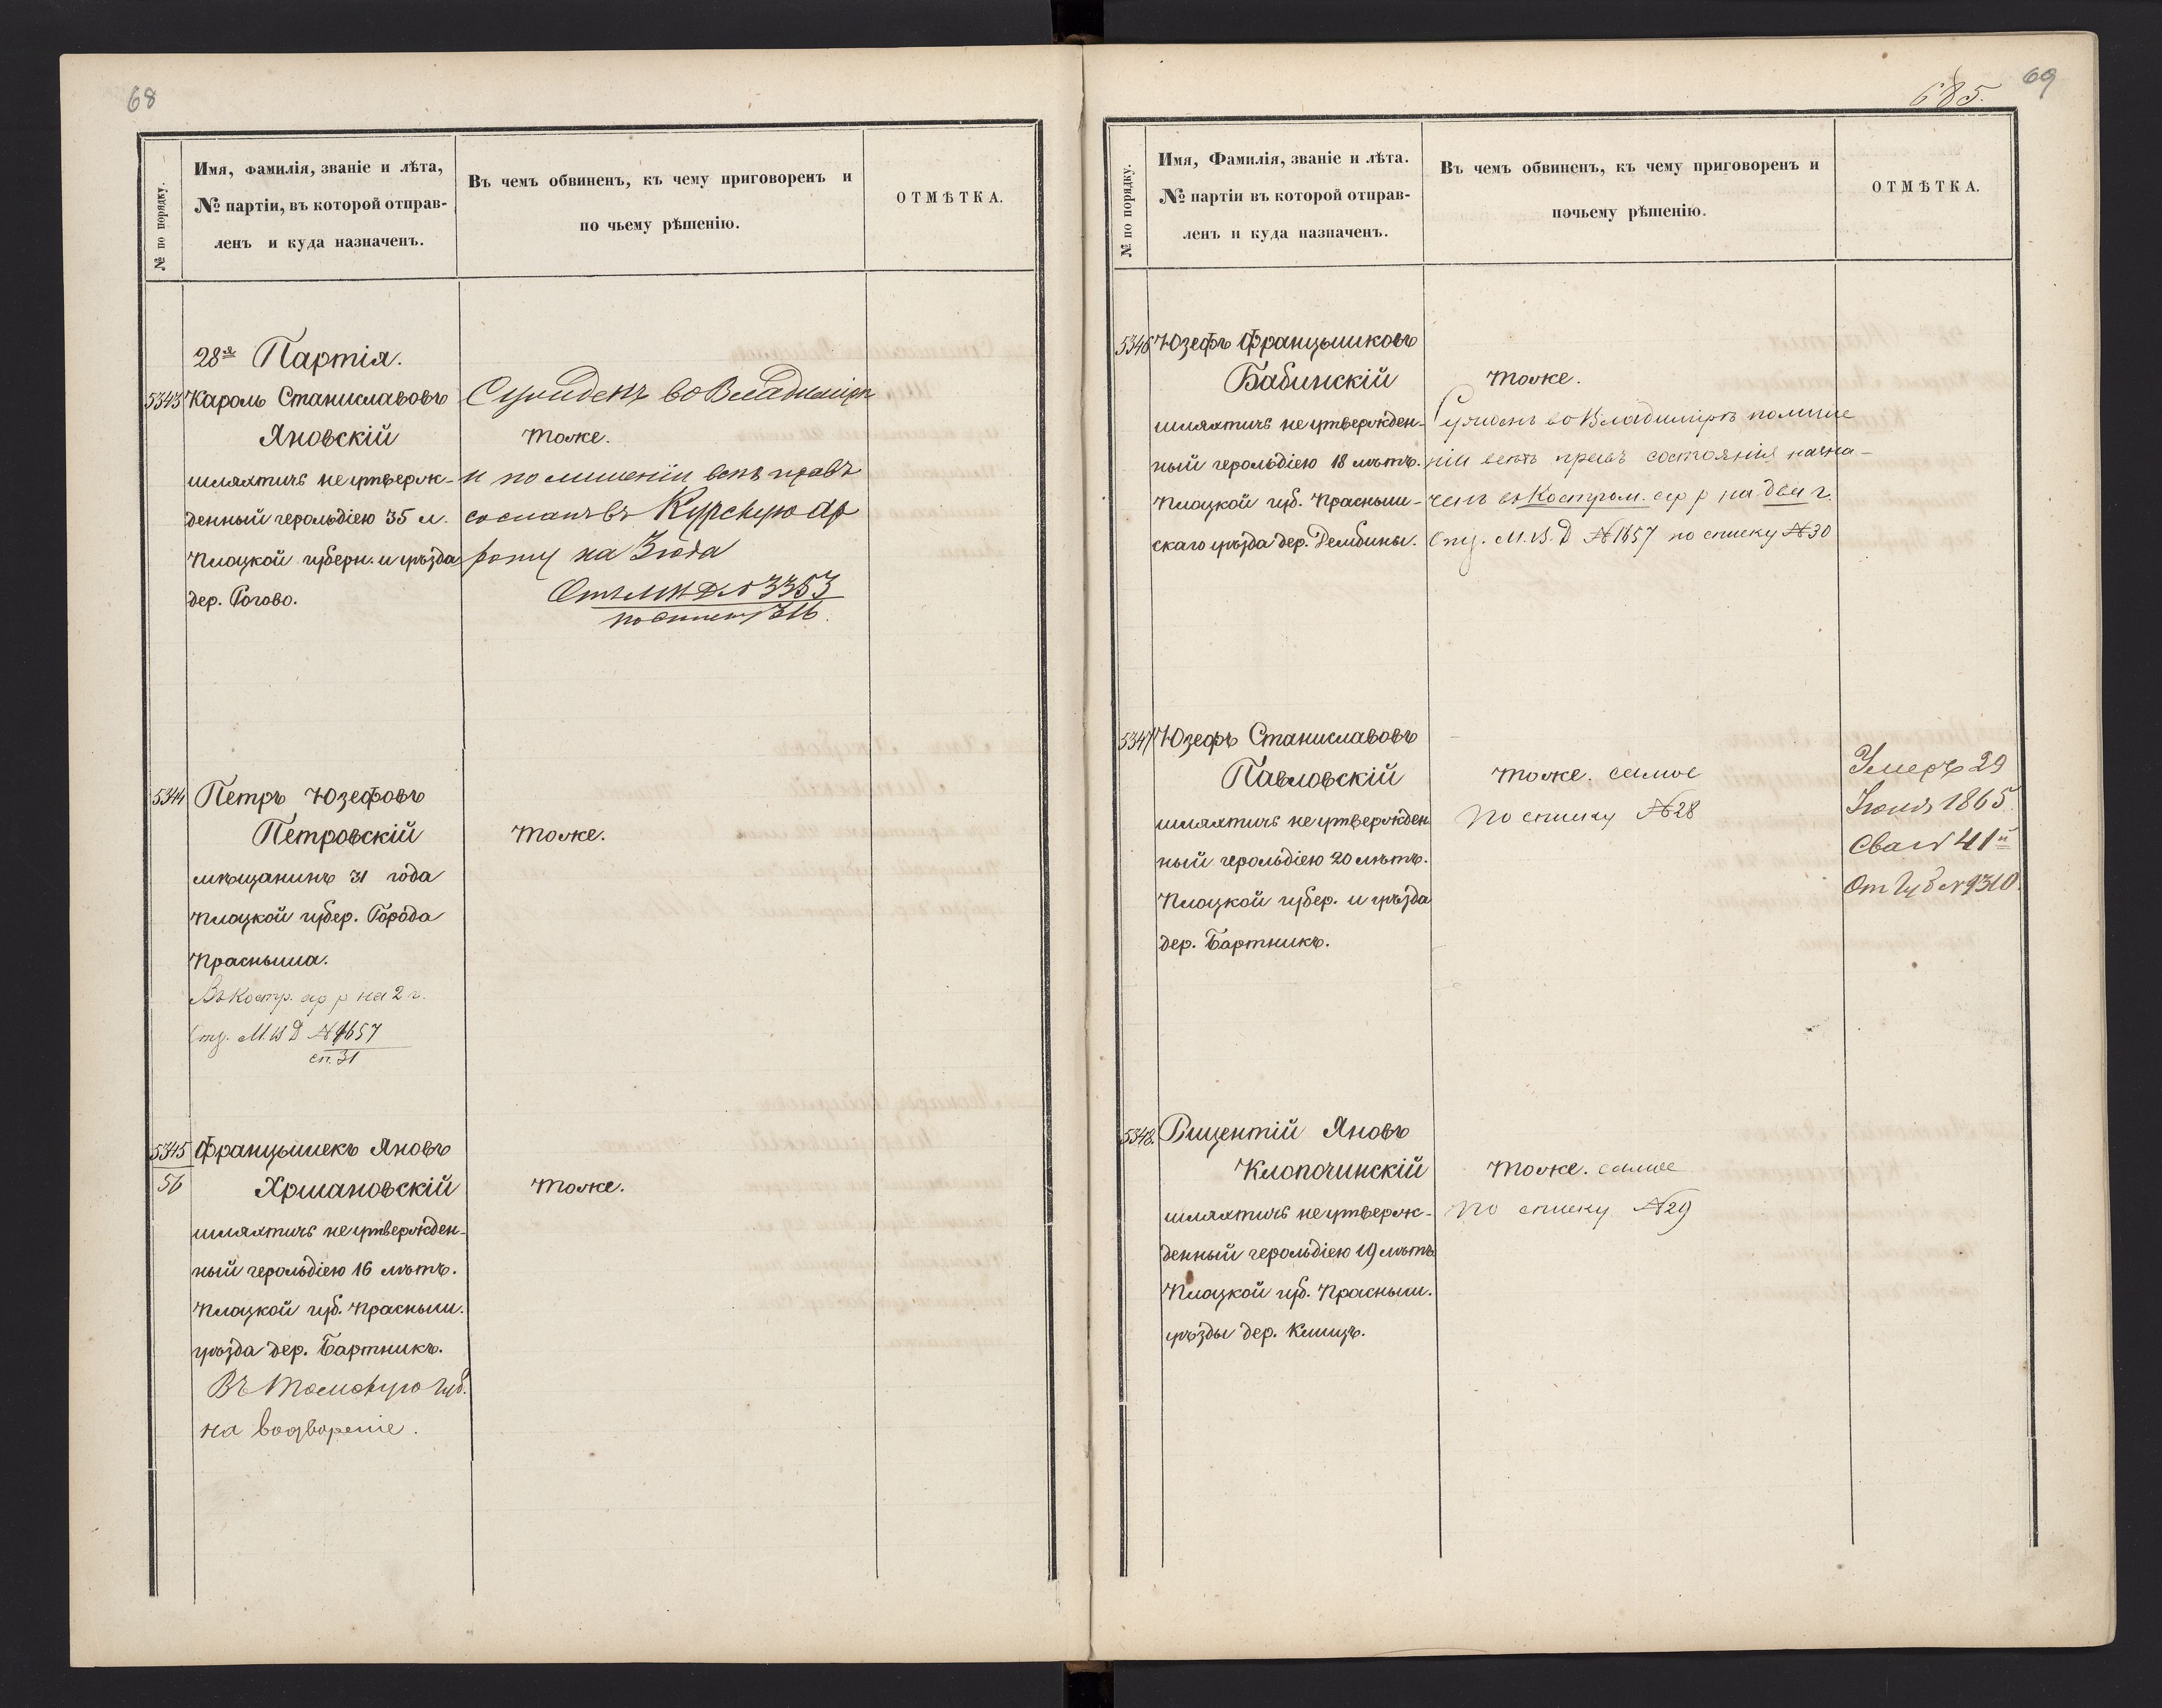 68
№ по порядку.
Имя, фамилія, званіе и лѣта,
№ партіи, въ которой отправ-
ленъ и куда назначенъ.
Въ чемъ обвиненъ, къ чему приговоренъ и
по чьему рѣшенію.
ОТМѢТКА.
28я Партія.
5343 Кароль Станиславовъ
Яновскій
шляхтичъ неутверж-
денный герольдіею 35 л.
Плоцкой губерн. и уѣзда
дер. Рогово.
Сужденъ во Владимірѣ
тоже.
и по лишеніи всѣхъ правъ
сосланъ въ Курскую ар
роту на 3 года
№ 3353
316.
5344 Петръ Юзефовъ
Петровскій
мѣщанинъ 31 года
Плоцкой губер. Города
Прасныша.
Въ Костр. ар р на 2 г.
Отз. М.В.Д № 1657
сп. 31
тоже.
5345 Францышекъ Яновъ
56 Хршановскій
шляхтичъ неутвержден-
ный герольдіею 16 лѣтъ.
Плоцкой губ. Прасныш.
уѣзда дер. Бартникъ.
Въ Томскую губ.
на водвореніе.
тоже.
69
685.
№ по порядку.
Имя, Фамилія, званіе и лѣта.
№ партіи въ которой отправ-
ленъ и куда назначенъ.
Въ чемъ обвиненъ, къ чему приговоренъ и
почьему рѣшенію.
ОТМѢТКА.
5346 Юзефъ Францышковъ
Бабинскій
шляхтичъ неутвержден-
ный герольдіею 18 лѣтъ.
Плоцкой губ. Прасныш-
скаго уѣзда дер. Дембины.
тоже.
Сужденъ во Владимірѣ по лише
ніи всѣхъ правъ состоянія назна-
ченъ въ Костром. ар р на два г.
Отз. М.В.Д № 1657 по списку № 30
5347 Юзефъ Станиславовъ
Павловскій
шляхтичъ неутвержден
ный герольдіею 20 лѣтъ.
Плоцкой губер. и уѣзда
дер. Бартникъ.
тоже. самое
По списку № 28
Умеръ 29
1865
41й
От Губ № 9310.
5348. Вицентій Яновъ
Клопочинскій
шляхтичъ неутверж-
денный герольдіею 19 лѣтъ
Плоцкой губ. Прасныш.
уѣзды дер. Клицъ.
тоже. самое
По списку № 29